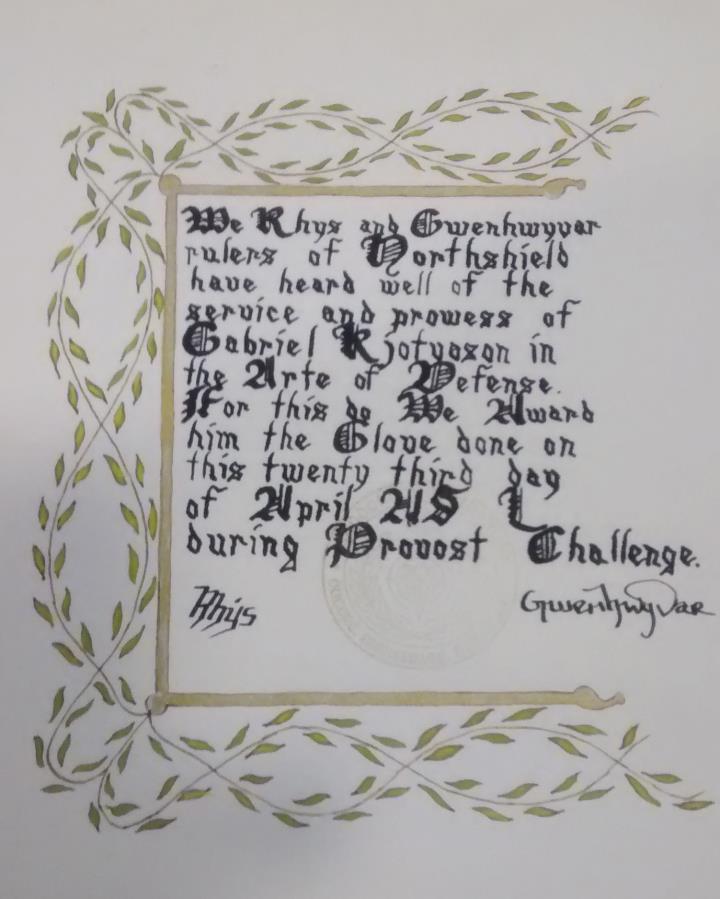 We Rhys and Gwenhwyvar
rulers of Northshield
have heard well of the
service and prowess of
Gabriel Kjotvason in
the Arte of Defense.
For this do We Award
him the Glove done on
this twenty third day
of April AS L
during Provost Challenge.
Rhys
Gwenhwyvar